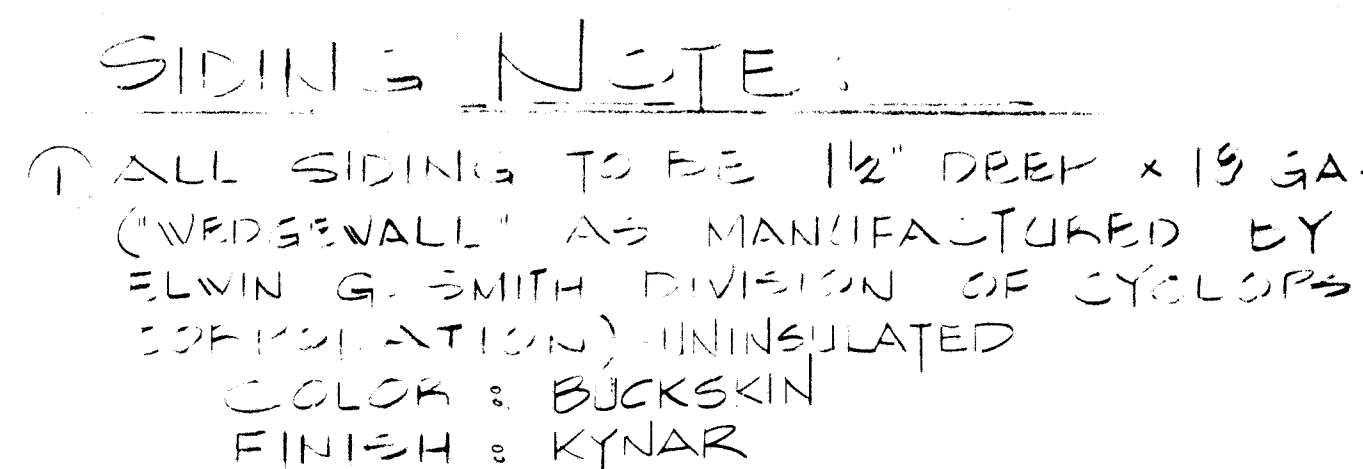 SIDING NOTE:
① ALL SIDING TO BE 1½" DEEP x 18 GA.
("WEDGEWALL" AS MANUFACTURED BY
ELWIN G. SMITH DIVISION OF CYCLOPS
CORPORATION) UNINSULATED
COLOR : BUCKSKIN
FINISH : KYNAR